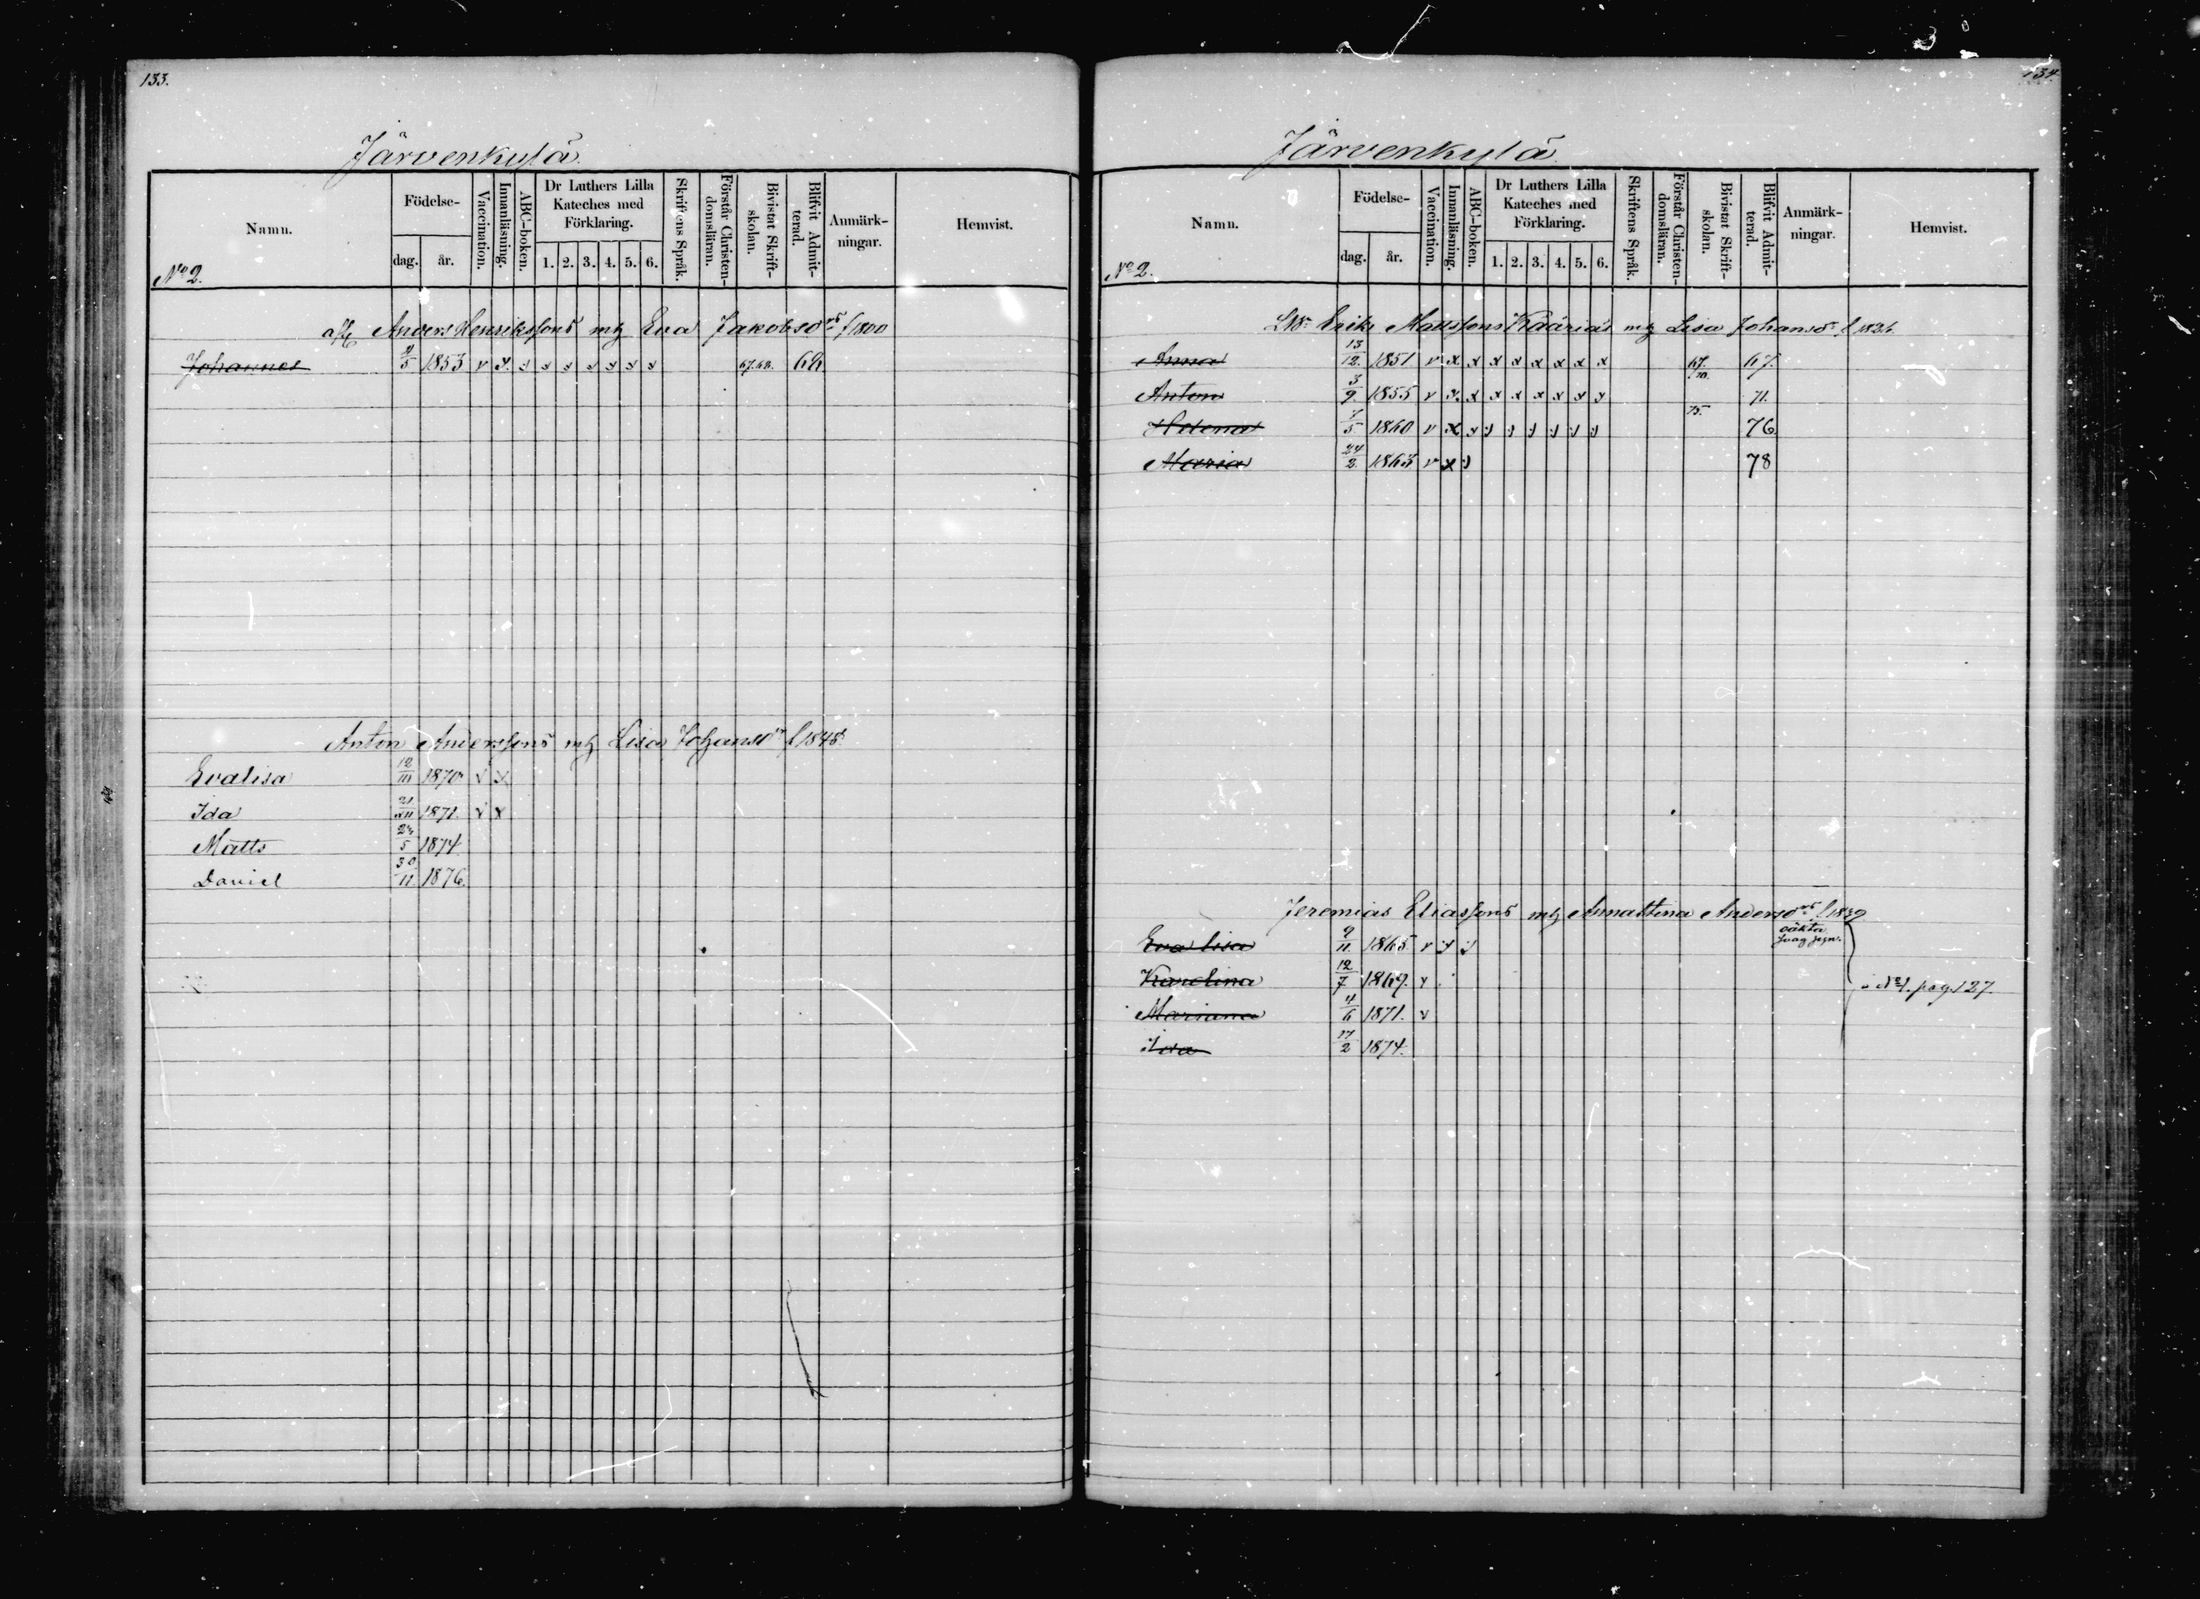 133.
Järvenkylä
Namn. Födelse- dag. år. Vaccination. Innanläsning. ABC-boken. Dr Luthers Lilla Kateches med Förklaring. 1. 2. 3. 4. 5. 6. Skriftens Språk. Förstår Christendomsläran. Bivistat Skriftskolan. Blifvit Admitterad. Anmärkningar. Hemvist.
No 2.
Anders Henrikssons mh Eva Jakobsdrs f 1800
Johannes 1853 v x 67.68. 68
Anton Anderssons mh Lisa Johansdr f 1848.
Evalisa 12/10 1870 v x
Ida 21/XII 1871. v x
Matts 5 1874
Daniel 30/11. 1876.
134.
Järvenkylä
Namn. Födelse- dag. år. Vaccination. Innanläsning. ABC-boken. Dr Luthers Lilla Kateches med Förklaring. 1. 2. 3. 4. 5. 6. Skriftens Språk. Förstår Christendomsläran. Bivistat Skriftskolan. Blifvit Admitterad. Anmärkningar. Hemvist.
No 2.
Eriks Mattssons Kääriäs mh Lisa Johansdr f
Anna 13/12. 1851 v x x x x x x x x 67. 67.
Anton 3/9. 1855 v x x x x x x x x 71.
Helena 7/5 1860 v x 75. 76
Maria 24/2. 1863 v x 78
Jeremias Eliassons mh Annastina Andersdrs f 1839
Eva Lisa 9/11 1865 v oäkta
Karolina 12/7 1869. v No 1. pag. 127.
Mariana 4/6 1871. v
Ida 17/2 1874.